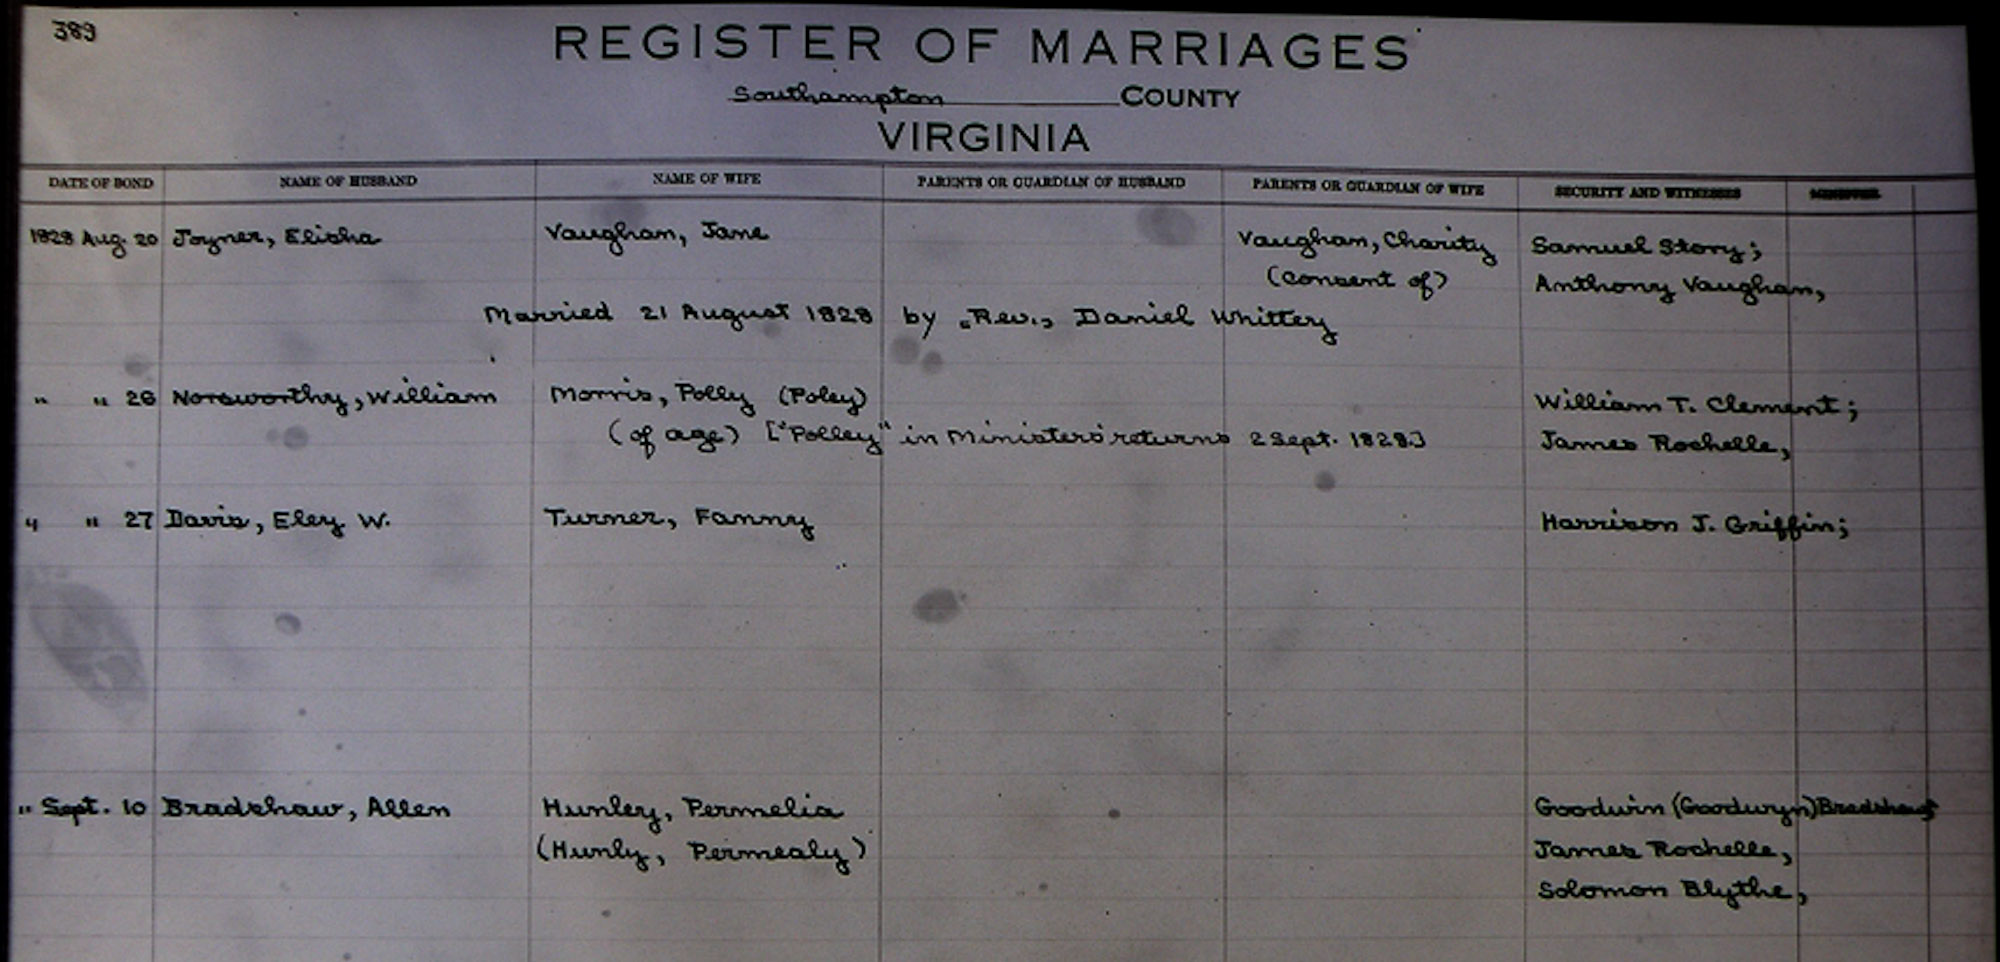 389
REGISTER OF MARRIAGES
Southampton COUNTY
VIRGINIA
DATE OF BOND NAME OF HUSBAND NAME OF WIFE PARENTS OR GUARDIAN OF HUSBAND PARENTS OR GUARDIAN OF WIFE SECURITY AND WITNESSES
1828 Aug. 20 Joyner, Elisha Vaughan, Jane Vaughan, Charity Samuel Story;
(consent of) Anthony Vaughan,
Married 21 August 1828 by "Rev., Daniel Whittery
" " 26 Norsworthy, William Morris, Polly (Poley) William T. Clement;
(of age) ["Polley" in Ministers' returns 2 Sept. 1828.] James Rochelle,
" " 27 Davis, Eley W. Turner, Fanny Harrison J. Griffin;
" Sept. 10 Bradshaw, Allen Hunley, Permelia Goodwin (Goodwyn) Bradshaw;
(Hunly, Permealy) James Rochelle,
Solomon Blythe,